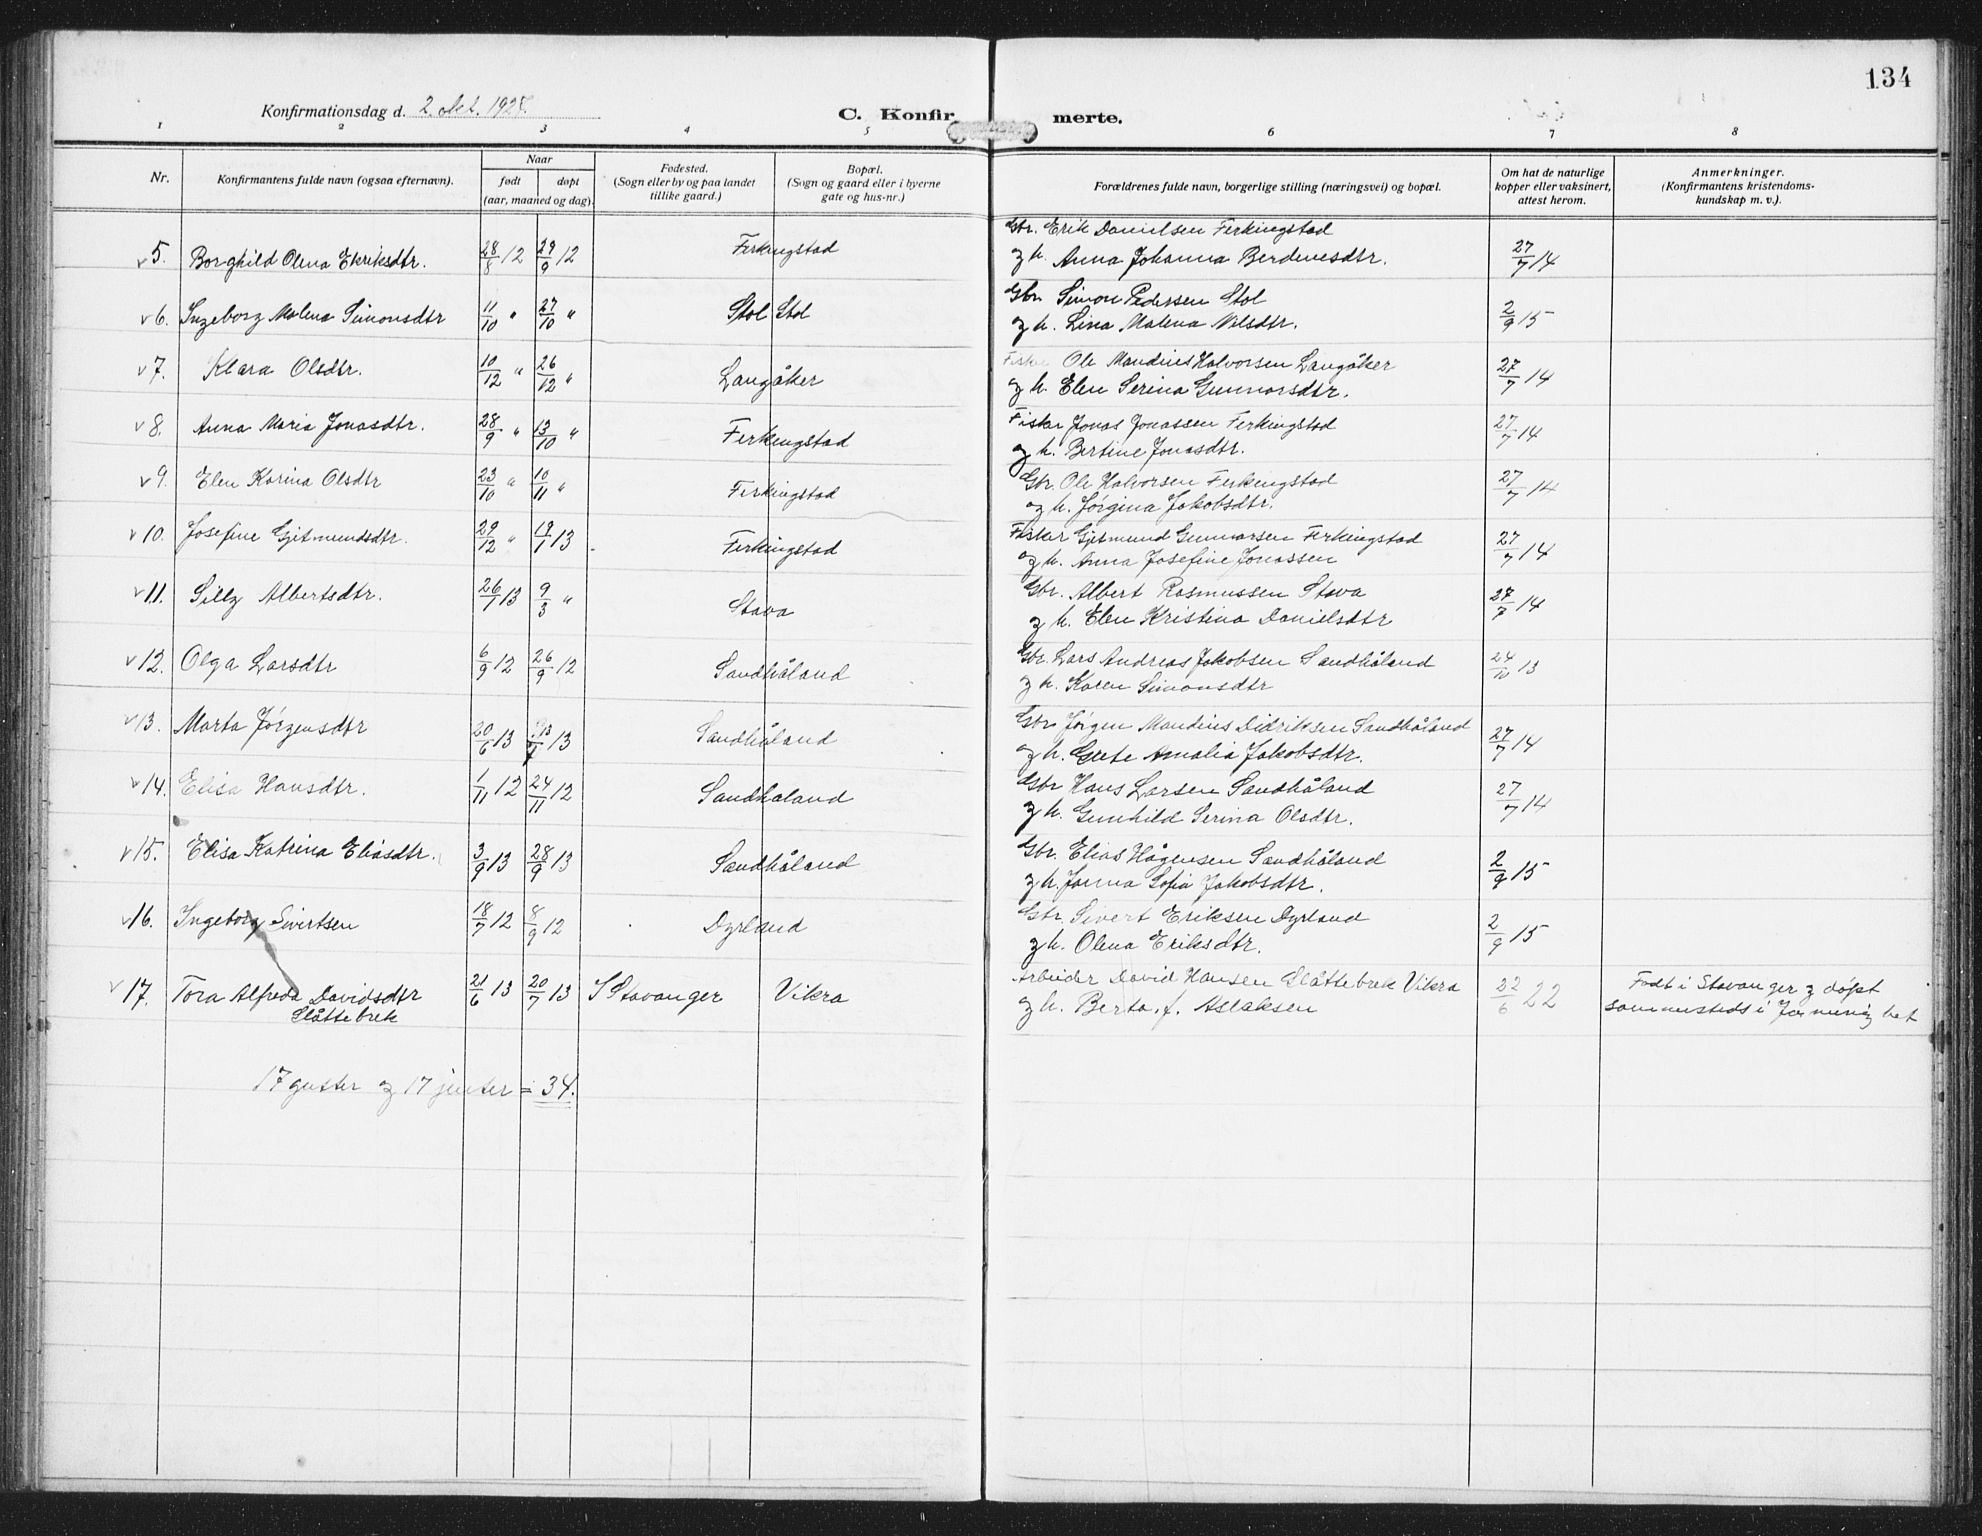 134
Konfirmationsdag d. 2 okt. 1927.
C. Konfir merte.
1 2 3 4 5 6 7 8
Nr.
Konfirmantens fulde navn (ogsaa efternavn).
Naar
født døpt
(aar, maaned og dag).
Fødested.
(Sogn eller by og paa landet
tillike gaard.)
Bopæl.
(Sogn og gaard eller i byerne
gate og hus-nr.)
Forældrenes fulde navn, borgerlige stilling (næringsvei) og bopæl.
Om hat de naturlige
kopper eller vaksinert,
attest herom.
Anmerkninger.
(Konfirmantens kristendoms-
kundskap m. v.).
Gbr. Erik Danielsen Ferkingstad
v 5. Borghild Olena Ekriksdtr. 28/8 12 29/9 12 Ferkingstad
og h. Anna Johanna Berdinesdtr. 27/7 14
Gbr. Simon Pedersen Stol
v 6. Ingeborg Malena Simonsdtr 11/10 " 27/10 " Stol Stol
og h. Lina Malena Nilsdtr. 2/9 15
Fisker Ole Mandius Halvorsen Langåker
v 7. Klara Olsdtr. 10/12 " 26/12 " Langåker
og h. Elen Serina Gunnarsdtr. 27/7 14
Fisker Jonas Jonassen Ferkingstad
v 8. Anna Maria Jonasdtr. 28/9 " 13/10 " Ferkingstad
og h. Bertine Jonasdtr. 27/7 14
Gbr. Ole Halvorsen Ferkingstad
v 9. Elen Karina Olsdtr 23/10 " 10/11 " Ferkingstad
og h. Jørgina Jakobsdtr. 27/7 14
Fisker Gjetmund Gunnarsen Ferkingstad
v 10. Josefine Gjetmundsdtr. 29/12 " 19/1 13 Ferkingstad
og h. Anna Josefine Jonassen 27/7 14
Gbr. Albert Rasmussen Stava
v 11. Silly Albertsdtr. 26/1 13 9/3 " Stava
og h. Elen Kristina Danielsdtr 27/7 14
Gbr. Lars Andreas Jakobsen Sandhåland
v 12. Olga Larsdtr 6/9 12 26/9 12 Sandhåland
og h. Karen Simonsdtr 24/10 13
Gbr Jørgen Mandius Didriksen Sandhåland
v 13. Marta Jørgensdtr 20/6 13 13/7 13 Sandhåland
og h. Grete Amalia Jakobsdtr. 27/7 14
Gbr Hans Larsen Sandhåland
v 14. Elisa Hansdtr. 1/11 12 24/11 12 Sandhåland
og h. Gunhild Serina Olsdtr. 27/7 14
Gbr. Elias Hågensen Sandhåland
v 15. Elisa Katrina Eliasdtr. 3/9 13 28/9 13 Sandhåland
og h. Janna Sofia Jakobsdtr. 2/9 15
Gbr. Sivert Eriksen Dyrland
v 16. Ingeborg Sivertsen 18/7 12 8/9 12 Dyrland
og h. Olena Eriksdtr. 2/9 15
Arbeider David Hansen Slåttebrek Vikra
v 17. Tora Alfreda Davidsdtr 21/6 13 20/7 13 S Stavanger Vikra
Slåttebrek
og h. Berta f. Aslaksen 22/6 22
Født i Stavanger og døpt
sammesteds i
17 gutter og 17 jenter = 34.